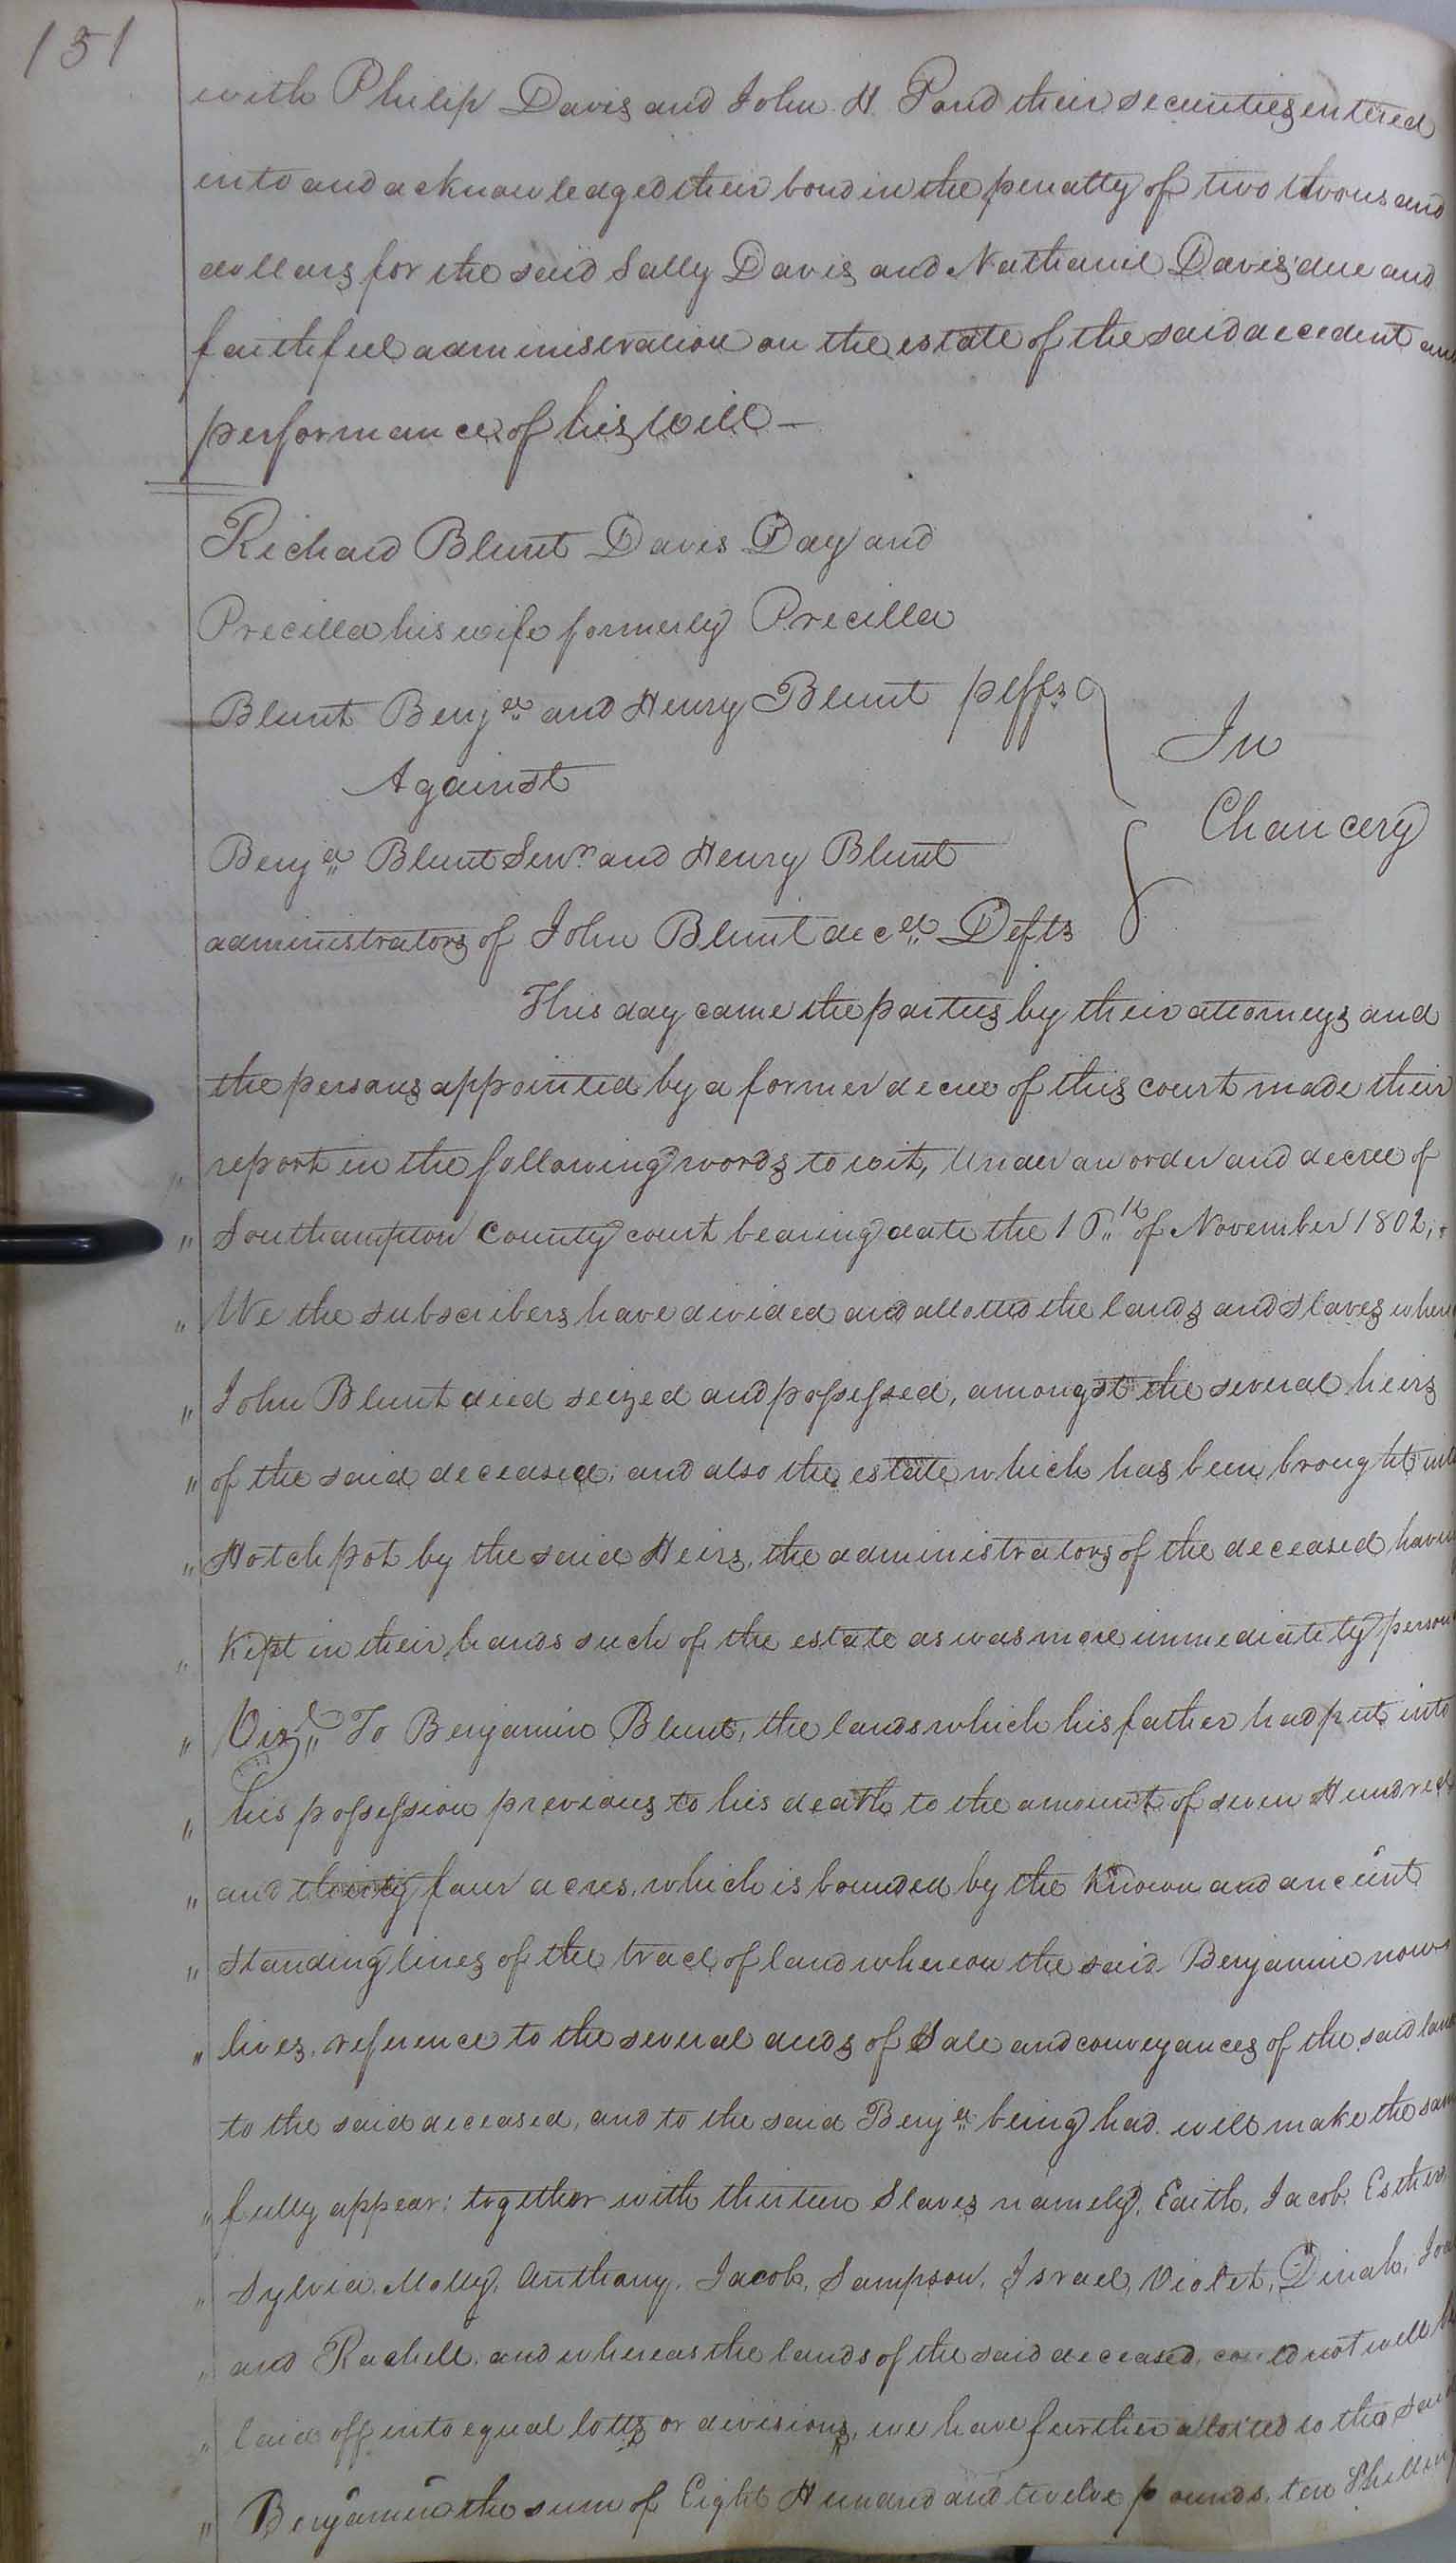 151
with Philip Davis and John H. Pond their securities entered
into and acknowledged their bond in the penalty of two thousand
dollars for the said Sally Davis and Nathaniel Davis' due and
faithfull administration on the estate of the said decedent and
performance of his Will —
Richard Blunt Davis Day and
Precilla his wife formerly Precilla
Blunt Benja. and Henry Blunt plffs
Against
In
Chancery
Benja. Blunt Senr. and Henry Blunt
administrators of John Blunt deced. Defts
This day came the parties by their attorneys and
the persons appointed by a former decree of this court made their
" report in the following words to wit, Under an order and decree of
" Southampton County court bearing date the of November 1802,
" We the subscribers have divided and allotted the lands and slaves
" John Blunt died seized and possessed, amongst the several heirs
" of the said deceased; and also the estate which has been brought into
" Hotch pot by the said Heirs, the administrators of the deceased having
" Kept in their hands such of the estate as was more immediately
" Vizt. To Benjamin Blunt, the lands which his father had put into
" his possession previous to his death to the amount of seven Hundred
" and thirty four acres, which is bounded by the Known and ancient
" Standing lines of the tract of land whereon the said Benjamin now
" lives, reference to the several deeds of Sale and conveyances of the said land
to the said deceased, and to the said Benja. being had will make the same
" fully appear; together with thirteen Slaves namely, Edith, Jacob, Esther
" Sylvia, Molly, Anthony, Jacob, Sampson, Israel, Violet, Dinah,
" and Rachell, and whereas the lands of the said deceased, could not well be
" laid off into equal lotts or divisions, we have further allotted to the said
" Benjamin the sum of Eight Hundred and twelve pounds, ten Shillings